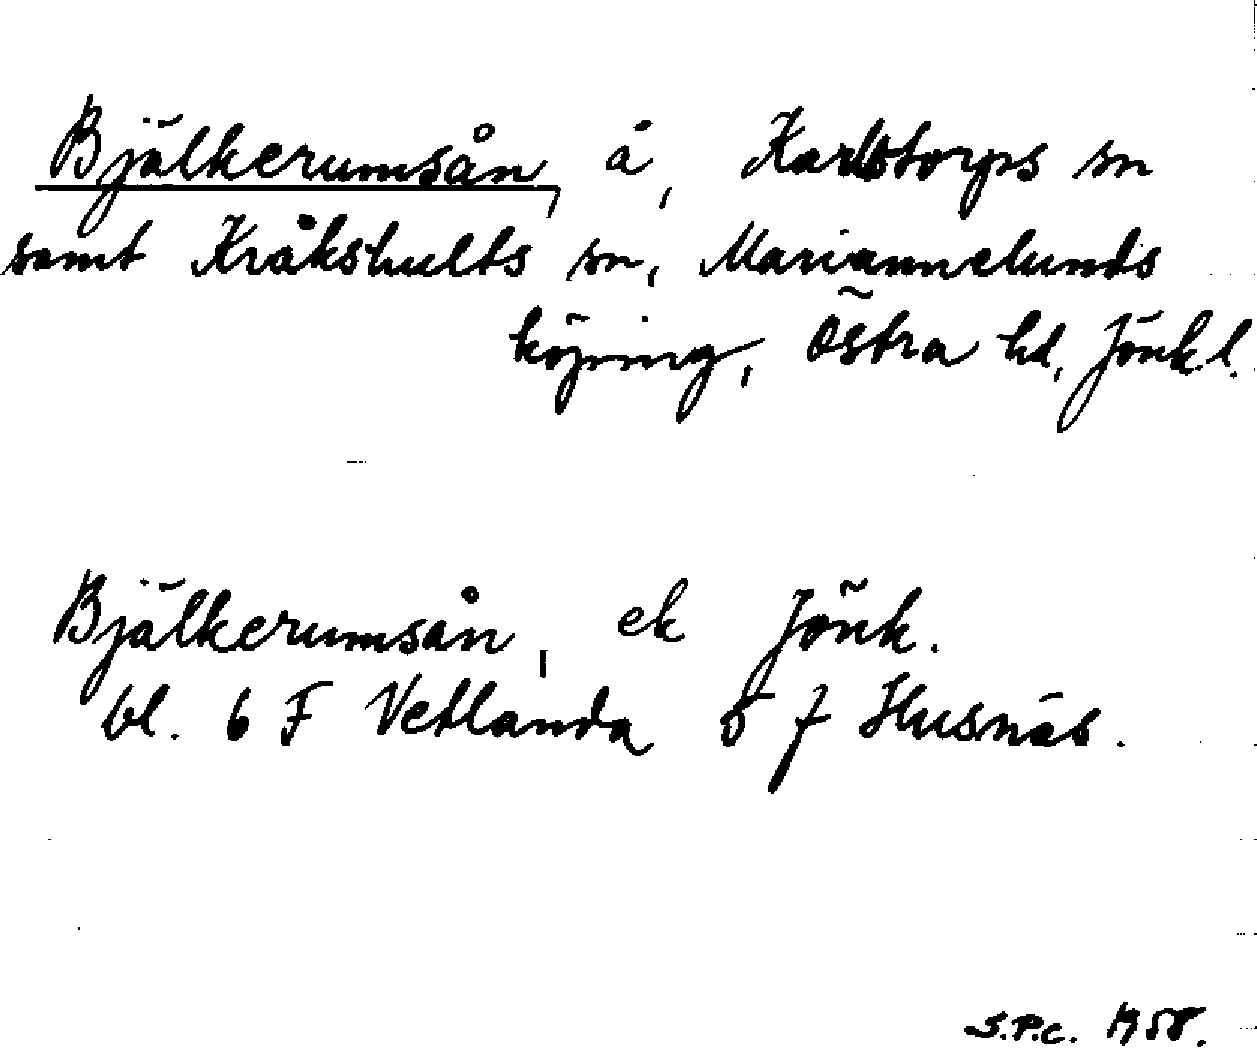 Bjälkerumsån, å, Karlstorps sn
samt Kråkshults sn, Mariannelunds
köping, Östra hd, Jönk.l.
Bjälkerumsån, ek Jönk.
bl. 6 F Vetlanda 8 f Husnäs.
S.P.C. 1958.